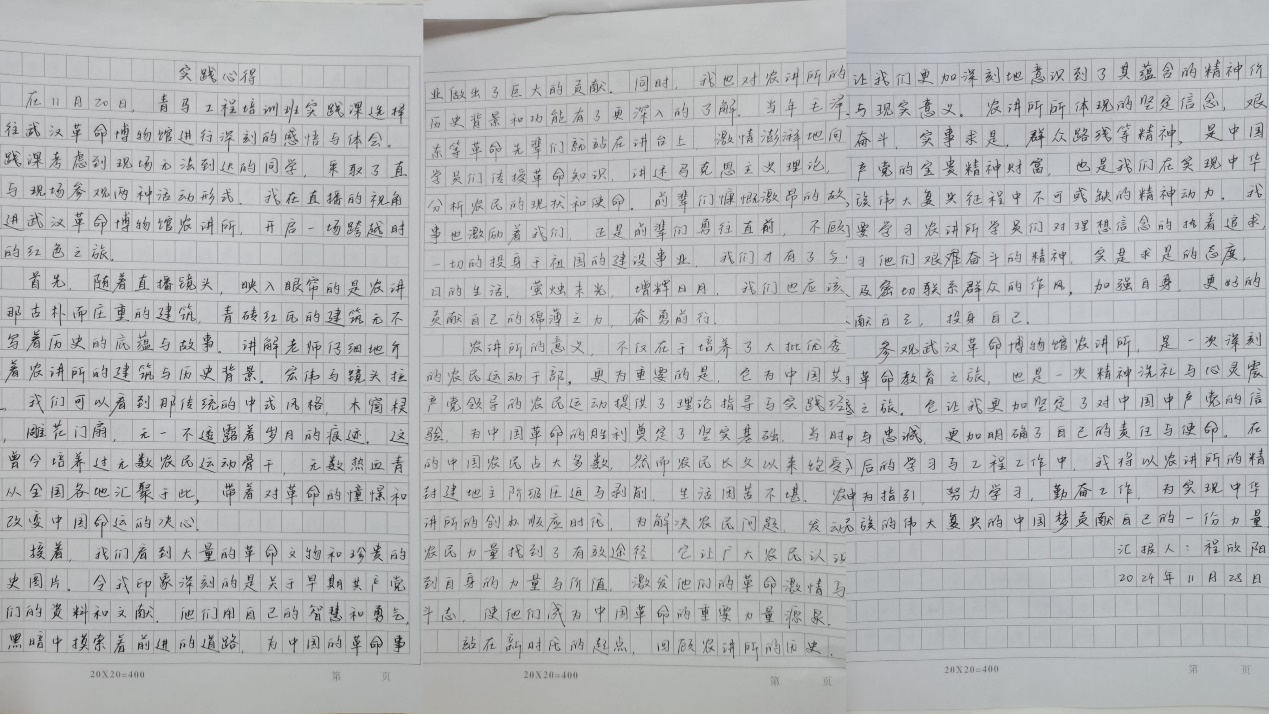 实践心得
在11月20日，青马工程培训班实践课选择
往武汉革命博物馆进行深刻的感悟与体会。
践课考虑到现场无法到达的同学，采取了直
与现场参观两种活动形式。我在直播的视角
进武汉革命博物馆农讲所，开启一场跨越时
的红色之旅。
首先，随着直播镜头，映入眼帘的是农讲
那古朴而庄重的建筑，青砖红瓦的建筑无不
写着历史的底蕴与故事。讲解老师仔细地介
着农讲所的建筑与历史背景。宏伟与镜头拉
，我们可以看到那传统的中式风格，木窗棂
，雕花门扇，无一不透露着岁月的痕迹。这
曾今培养过无数农民运动骨干，无数热血青
从全国各地汇聚于此，带着对革命的憧憬和
改变中国命运的决心。
接着，我们看到大量的革命文物和珍贵的
史图片。令我印象深刻的是关于早期共产党
们的资料和文献，他们用自己的智慧和勇气，
黑暗中摸索着前进的道路，为中国的革命事
20X20=400
第 页
业做出了巨大的贡献。同时，我也对农讲所的
历史背景和功能有了更深入的了解。当年毛泽
东等革命先辈们就站在讲台上，激情澎湃地向
学员们传授革命知识，讲述马克思主义理论，
分析农民的现状和使命。前辈们慷慨激昂的故
事也激励着我们，正是前辈们勇往直前，不顾
一切的投身于祖国的建设事业，我们才有了今
日的生活。萤烛末光，增辉日月，我们也应该
贡献自己的绵薄之力，奋勇前行。
农讲所的意义，不仅在于培养了大批优秀
的农民运动干部。更为重要的是，它为中国共
产党领导的农民运动提供了理论指导与实践经
验，为中国革命的胜利奠定了坚实基础。当时
的中国农民占大多数，然而农民长久以来饱受
封建地主阶级压迫与剥削，生活困苦不堪。农
讲所的创办顺应时代，为解决农民问题，发动
农民力量找到了有效途径。它让广大农民认识
到自身的力量与价值，激发他们的革命激情与
斗志，使他们成为中国革命的重要力量源泉。
站在新时代的起点，回顾农讲所的历史，
20X20=400
第 页
让我们更加深刻地意识到了其蕴含的精神价
与现实意义。农讲所所体现的坚定信念，艰
奋斗，实事求是，群众路线等精神，是中国
产党的宝贵精神财富，也是我们在实现中华
族伟大复兴征程中不可或缺的精神动力。我
要学习农讲所学员们对理想信念的执着追求，
习他们艰难奋斗的精神，实是求是的态度，
及密切联系群众的作风，加强自身，更好的
献自己，投身自己。
参观武汉革命博物馆农讲所，是一次深刻
革命教育之旅，也是一次精神洗礼与心灵震
之旅。它让我更加坚定了对中国中产党的信
与忠诚，更加明确了自己的责任与使命。在
后的学习与工程工作中，我将以农讲所的精
为指引，努力学习，勤奋工作，为实现中华
民族的伟大复兴的中国梦贡献自己的一份力量
汇报人：程欣阳
2024年11月28日
20X20=400
第 页